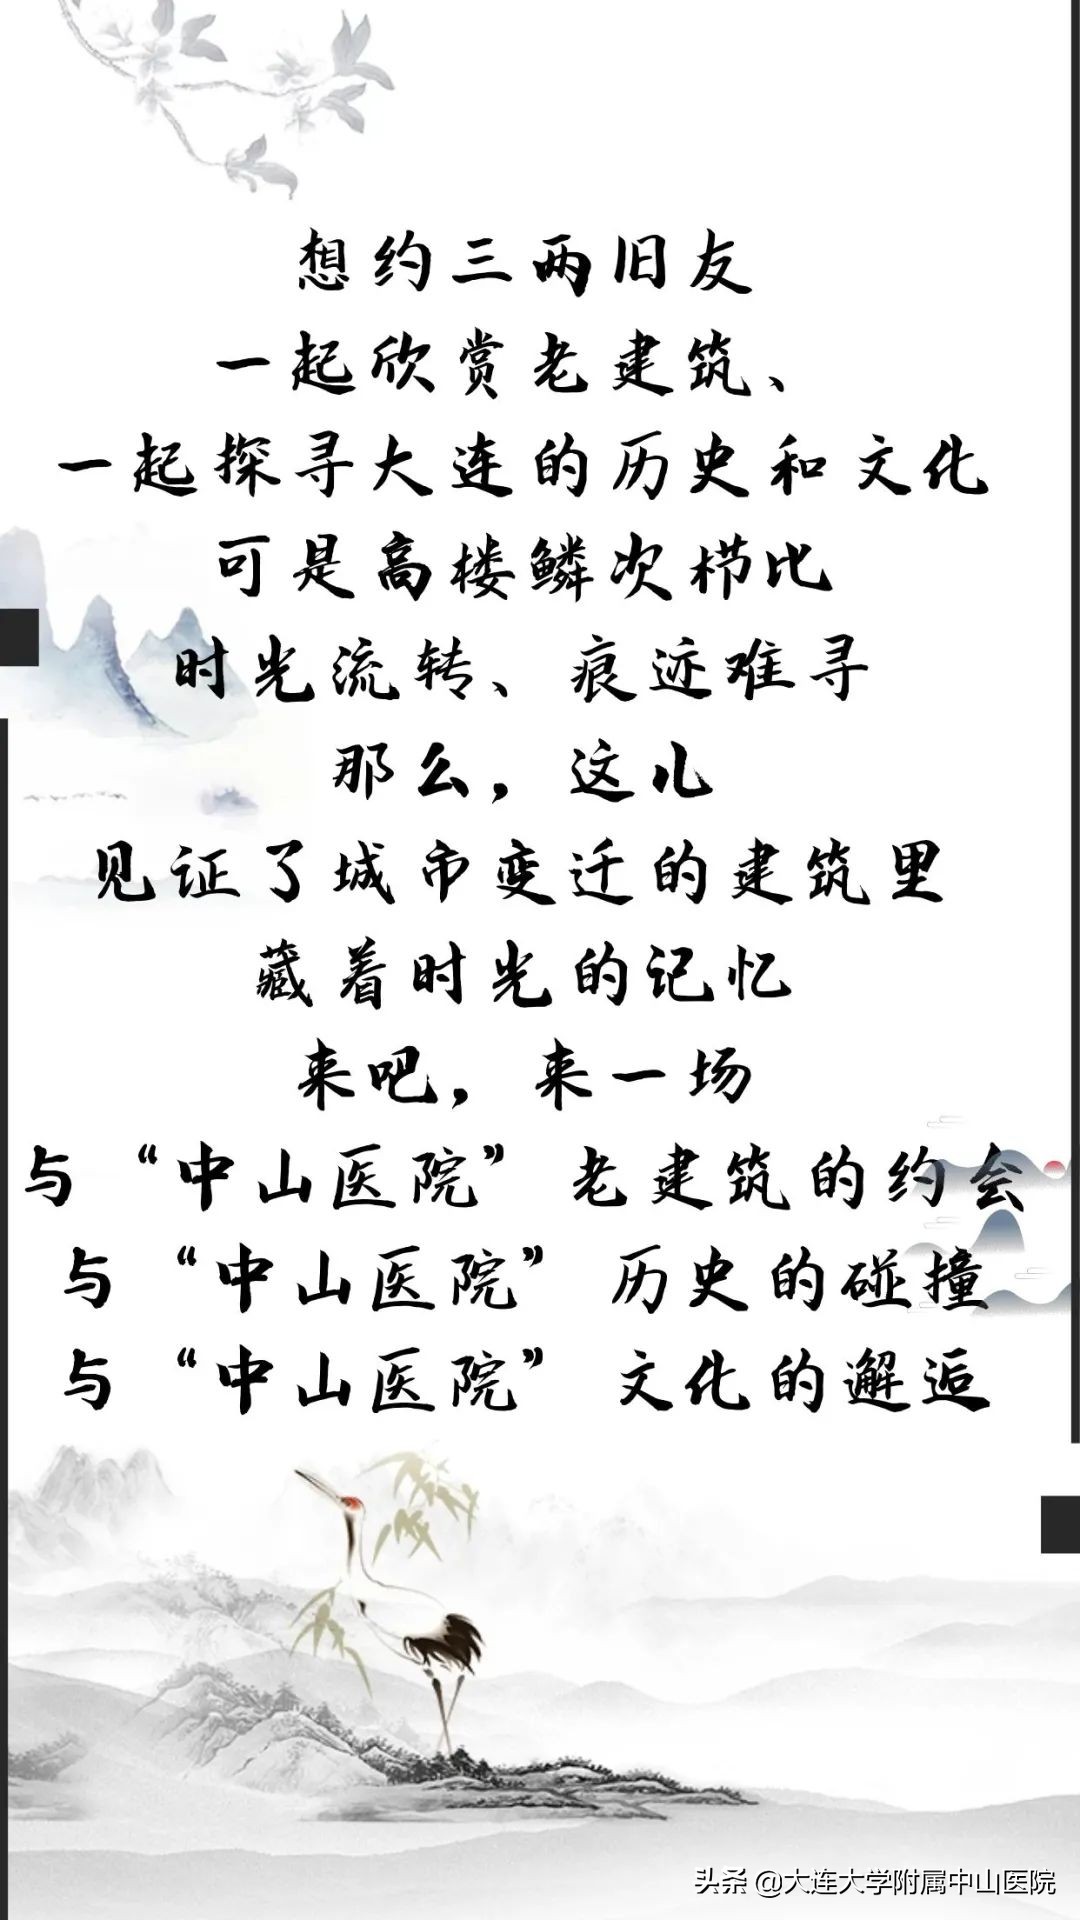 想约三两旧友
一起欣赏老建筑、
一起探寻大连的历史和文化
可是高楼鳞次栉比
时光流转、痕迹难寻
那么，这儿
见证了城市变迁的建筑里
藏着时光的记忆
来吧，来一场
与“中山医院”老建筑的约会
与“中山医院”历史的碰撞
与“中山医院”文化的邂逅
头条 @大连大学附属中山医院